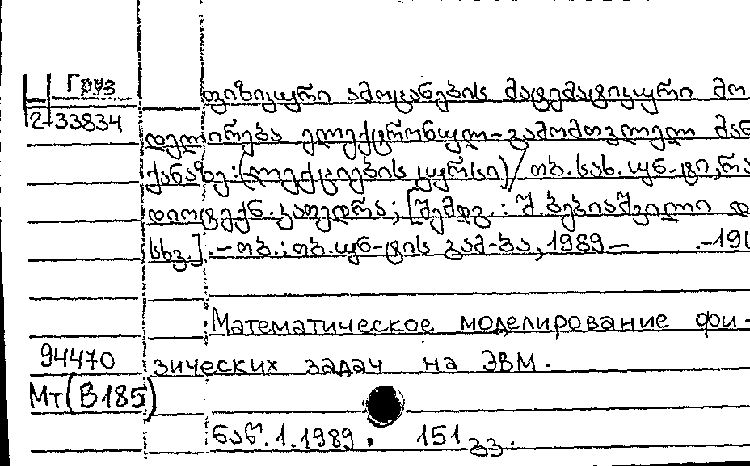 Груз
2-33834
ფიზიკური ამოცანების მათემატიკური მო
დელირება ელექტრონულ-გამომთვლელ მან
ქანაზე: (ლექციების კურსი) / თბ. სახ. უნ-ტი, რა
დიოტექნ. კათედრა; [შემდგ.: შ. ბებიაშვილი და
სხვ.]. – თბ.: თბ. უნ-ტის გამ-ბა, 1989 –
Математическое моделирование фи-
94470 зических задач на ЭВМ.
Мт(В185)
ნაწ. 1. 1989. 151 გვ.